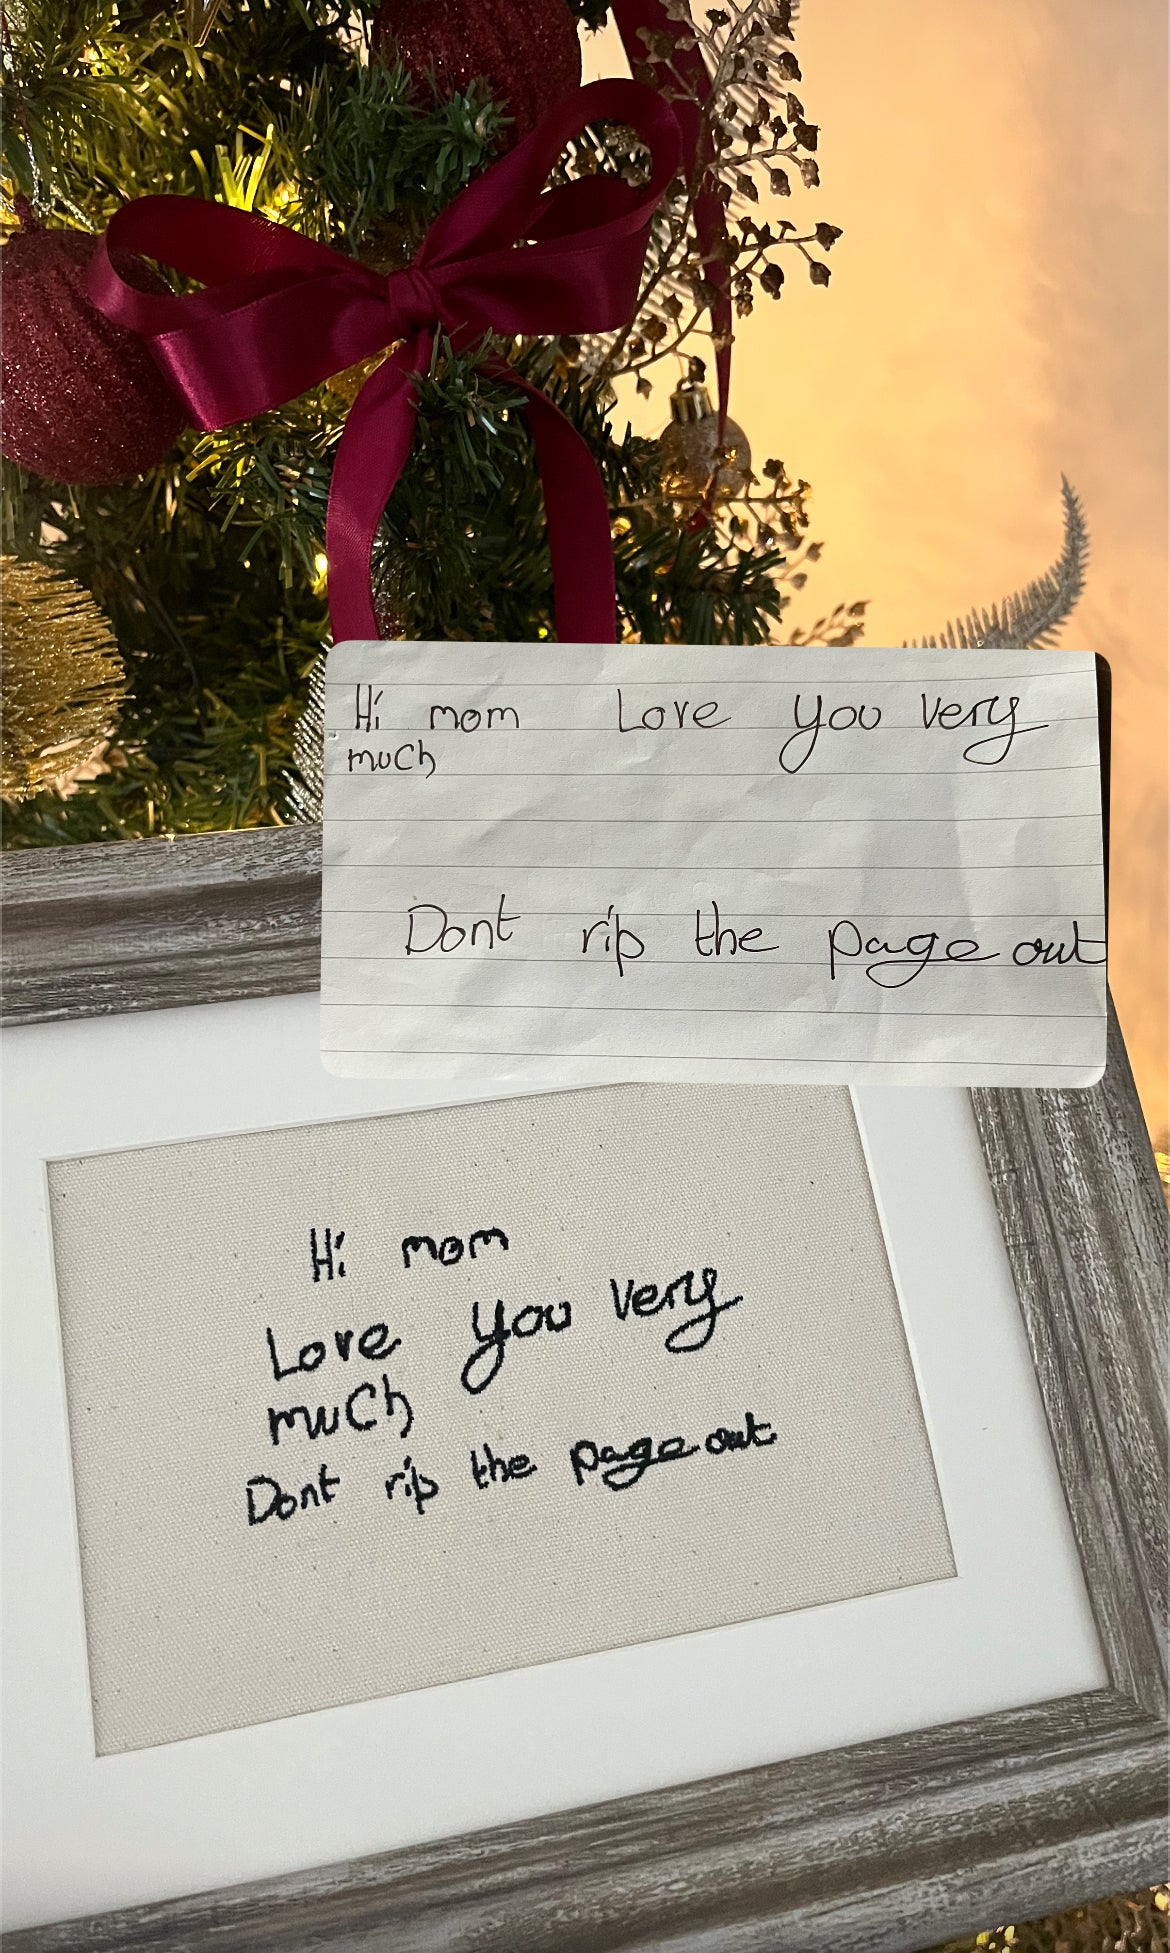 Hi mom Love you very
much
Dont rip the page out
Hi mom
Love you very
much
Dont rip the page out